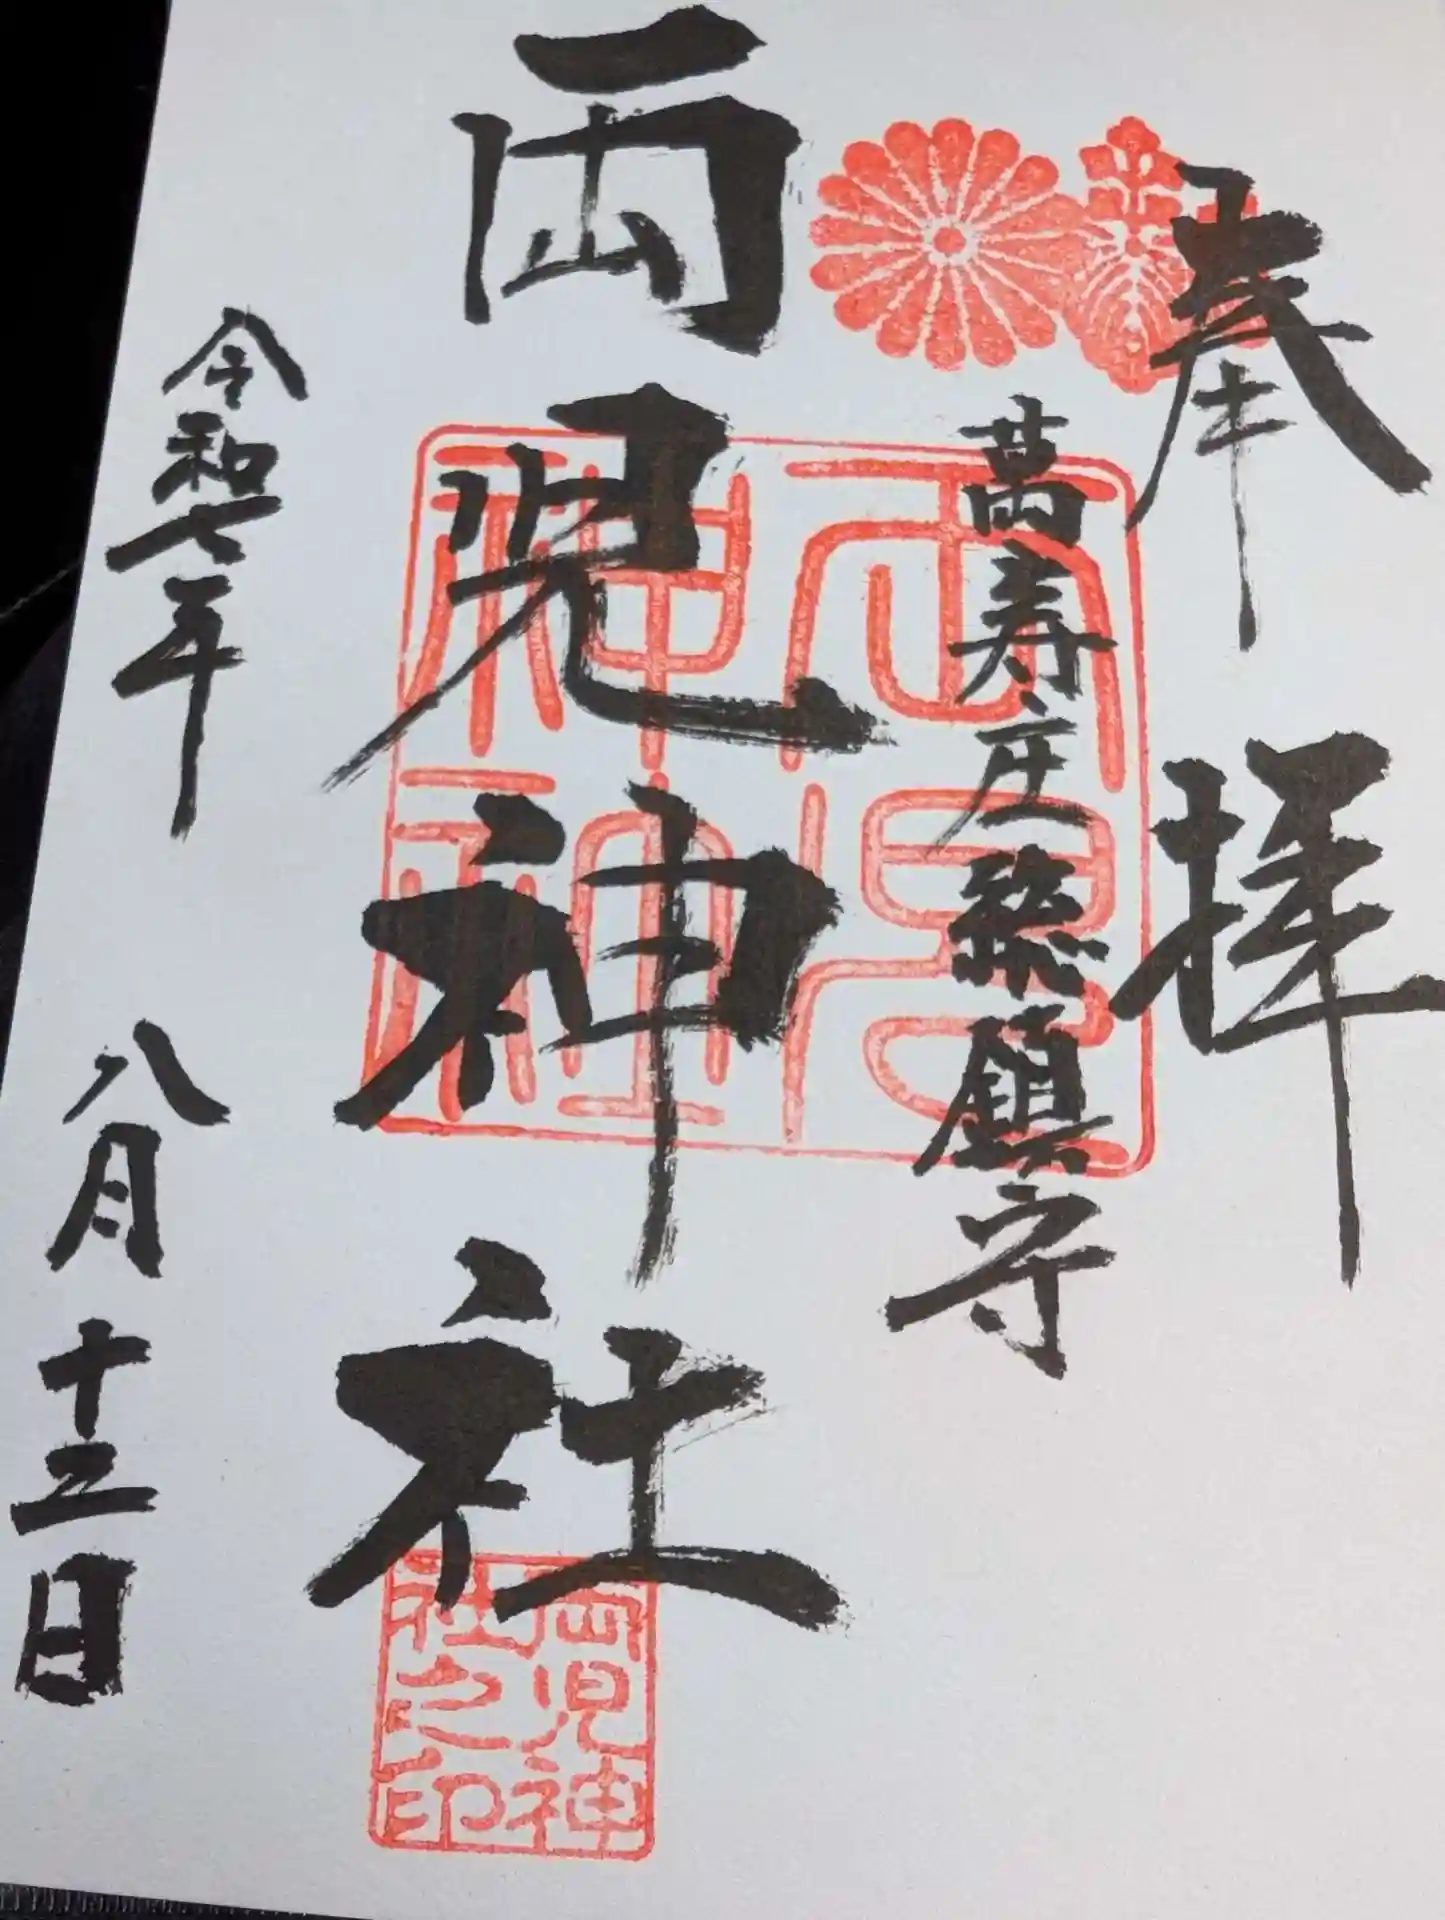 奉拝
萬寿庄総鎮守
両児神社
令和七年 八月十三日
両児
神社
両児神
社之印